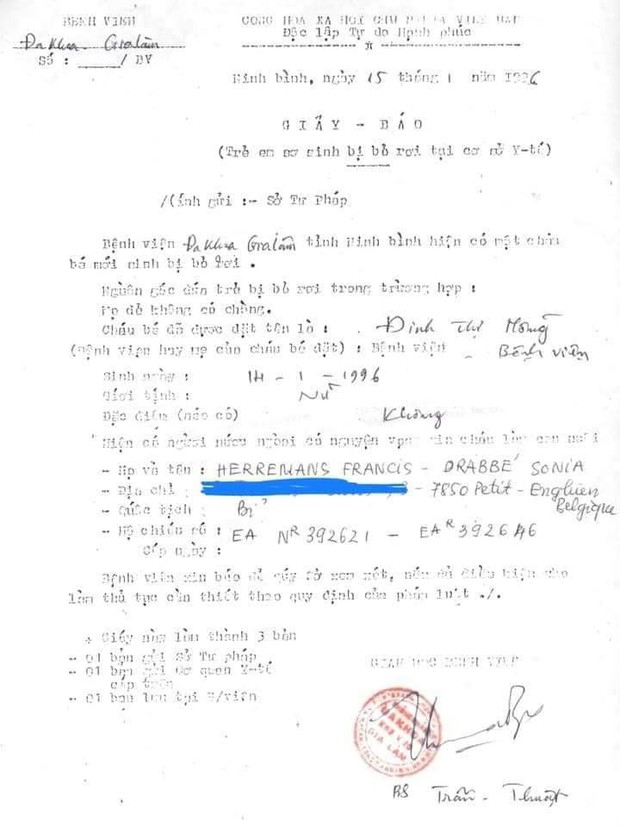 BỆNH VIỆN
CỘNG HÒA XÃ HỘI CHỦ NGHĨA VIỆT NAM
Đa Khoa Gia Lâm
Độc lập Tự do Hạnh phúc
Số : ____/ BV
Ninh bình, ngày 15 tháng 1 năm 1996
GIẤY - BÁO
(Trẻ em sơ sinh bị bỏ rơi tại cơ sở Y-tế)
/(ính gửi :- Sở Tư Pháp
Bệnh viện Đa Khoa Gia Lâm tỉnh Ninh bình hiện có một cháu
bé mới sinh bị bỏ rơi .
Nguồn gốc đứa trẻ bị bỏ rơi trong trường hợp :
Mẹ đẻ không có chồng.
Cháu bé đã được đặt tên là : Đinh Thị Hồng
(Bệnh viện hay mẹ của cháu bé đặt) : Bệnh viện Bệnh viện
Sinh ngày : 14 - 1 - 1996
Giới tính : Nữ
Đặc điểm (nếu có) Không
Hiện có người nước ngoài có nguyện vọng xin cháu làm con nuôi
- Họ và tên : HERREMANS FRANCIS - DRABBE' SONIA
- Địa chỉ : - 7850 Petit - Enghien
Belgique
- Quốc tịch : Bỉ
- Hộ chiếu số : EA NR 392621 - EA R 392646
Cấp ngày :
Bệnh viện xin báo để quý Sở xem xét, nếu đủ điều kiện cho
làm thủ tục cần thiết theo quy định của pháp luật ./.
* Giấy này làm thành 3 bản
- 01 bản gửi Sở Tư pháp
- 01 bản gửi cơ quan Y-tế
cấp trên
- 01 bản lưu tại B/viện
GIÁM ĐỐC BỆNH VIỆN
ĐA KHOA
KHU VỰC
GIA LÂM
BS Trần - Thuột